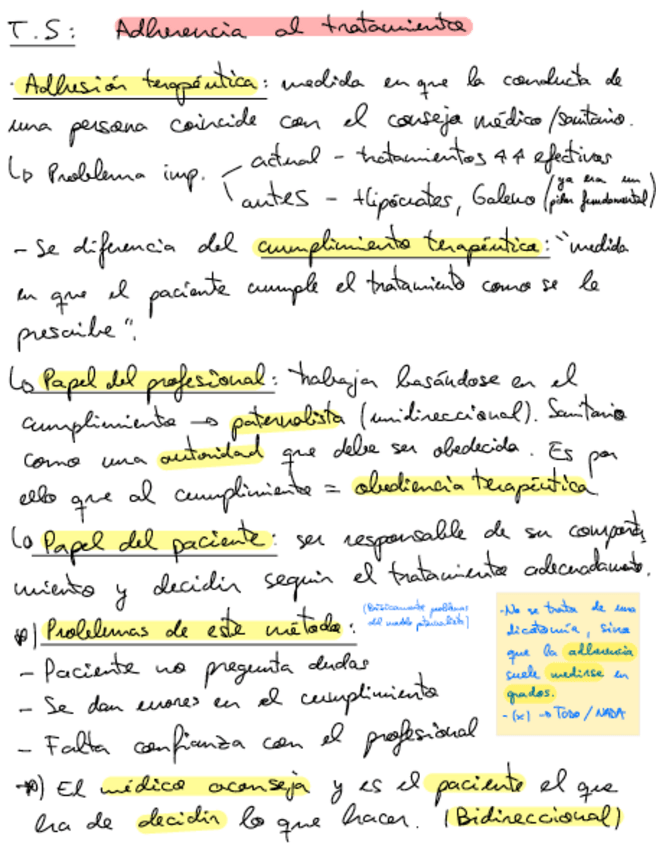 T.S: Adherencia al tratamiento
· Adhesión terapéutica: medida en que la conducta de
una persona coincide con el consejo médico/sanitario.
↳ Problema imp. actual - tratamientos ↑↑ efectivos
antes - Hipócrates, Galeno (ya era un pilar fundamental)
- Se diferencia del cumplimiento terapéutico: "medida
en que el paciente cumple el tratamiento como se le
prescribe".
↳ Papel del profesional: trabajar basándose en el
cumplimiento → paternalista (unidireccional). Sanitario
como una autoridad que debe ser obedecida. Es por
ello que al cumplimiento = obediencia terapéutica
↳ Papel del paciente: ser responsable de su comporta
miento y decidir seguir el tratamiento adecuadamente.
*) Problemas de este método:
(Básicamente problemas
del modelo paternalista)
- Paciente no pregunta dudas
- Se dan errores en el cumplimiento
- Falta confianza con el profesional
·No se trata de una
dicotomía, sino
que la adherencia
suele medirse en
grados.
- (x) → TODO / NADA
*) El médico aconseja y es el paciente el que
ha de decidir lo que hacer. (Bidireccional)